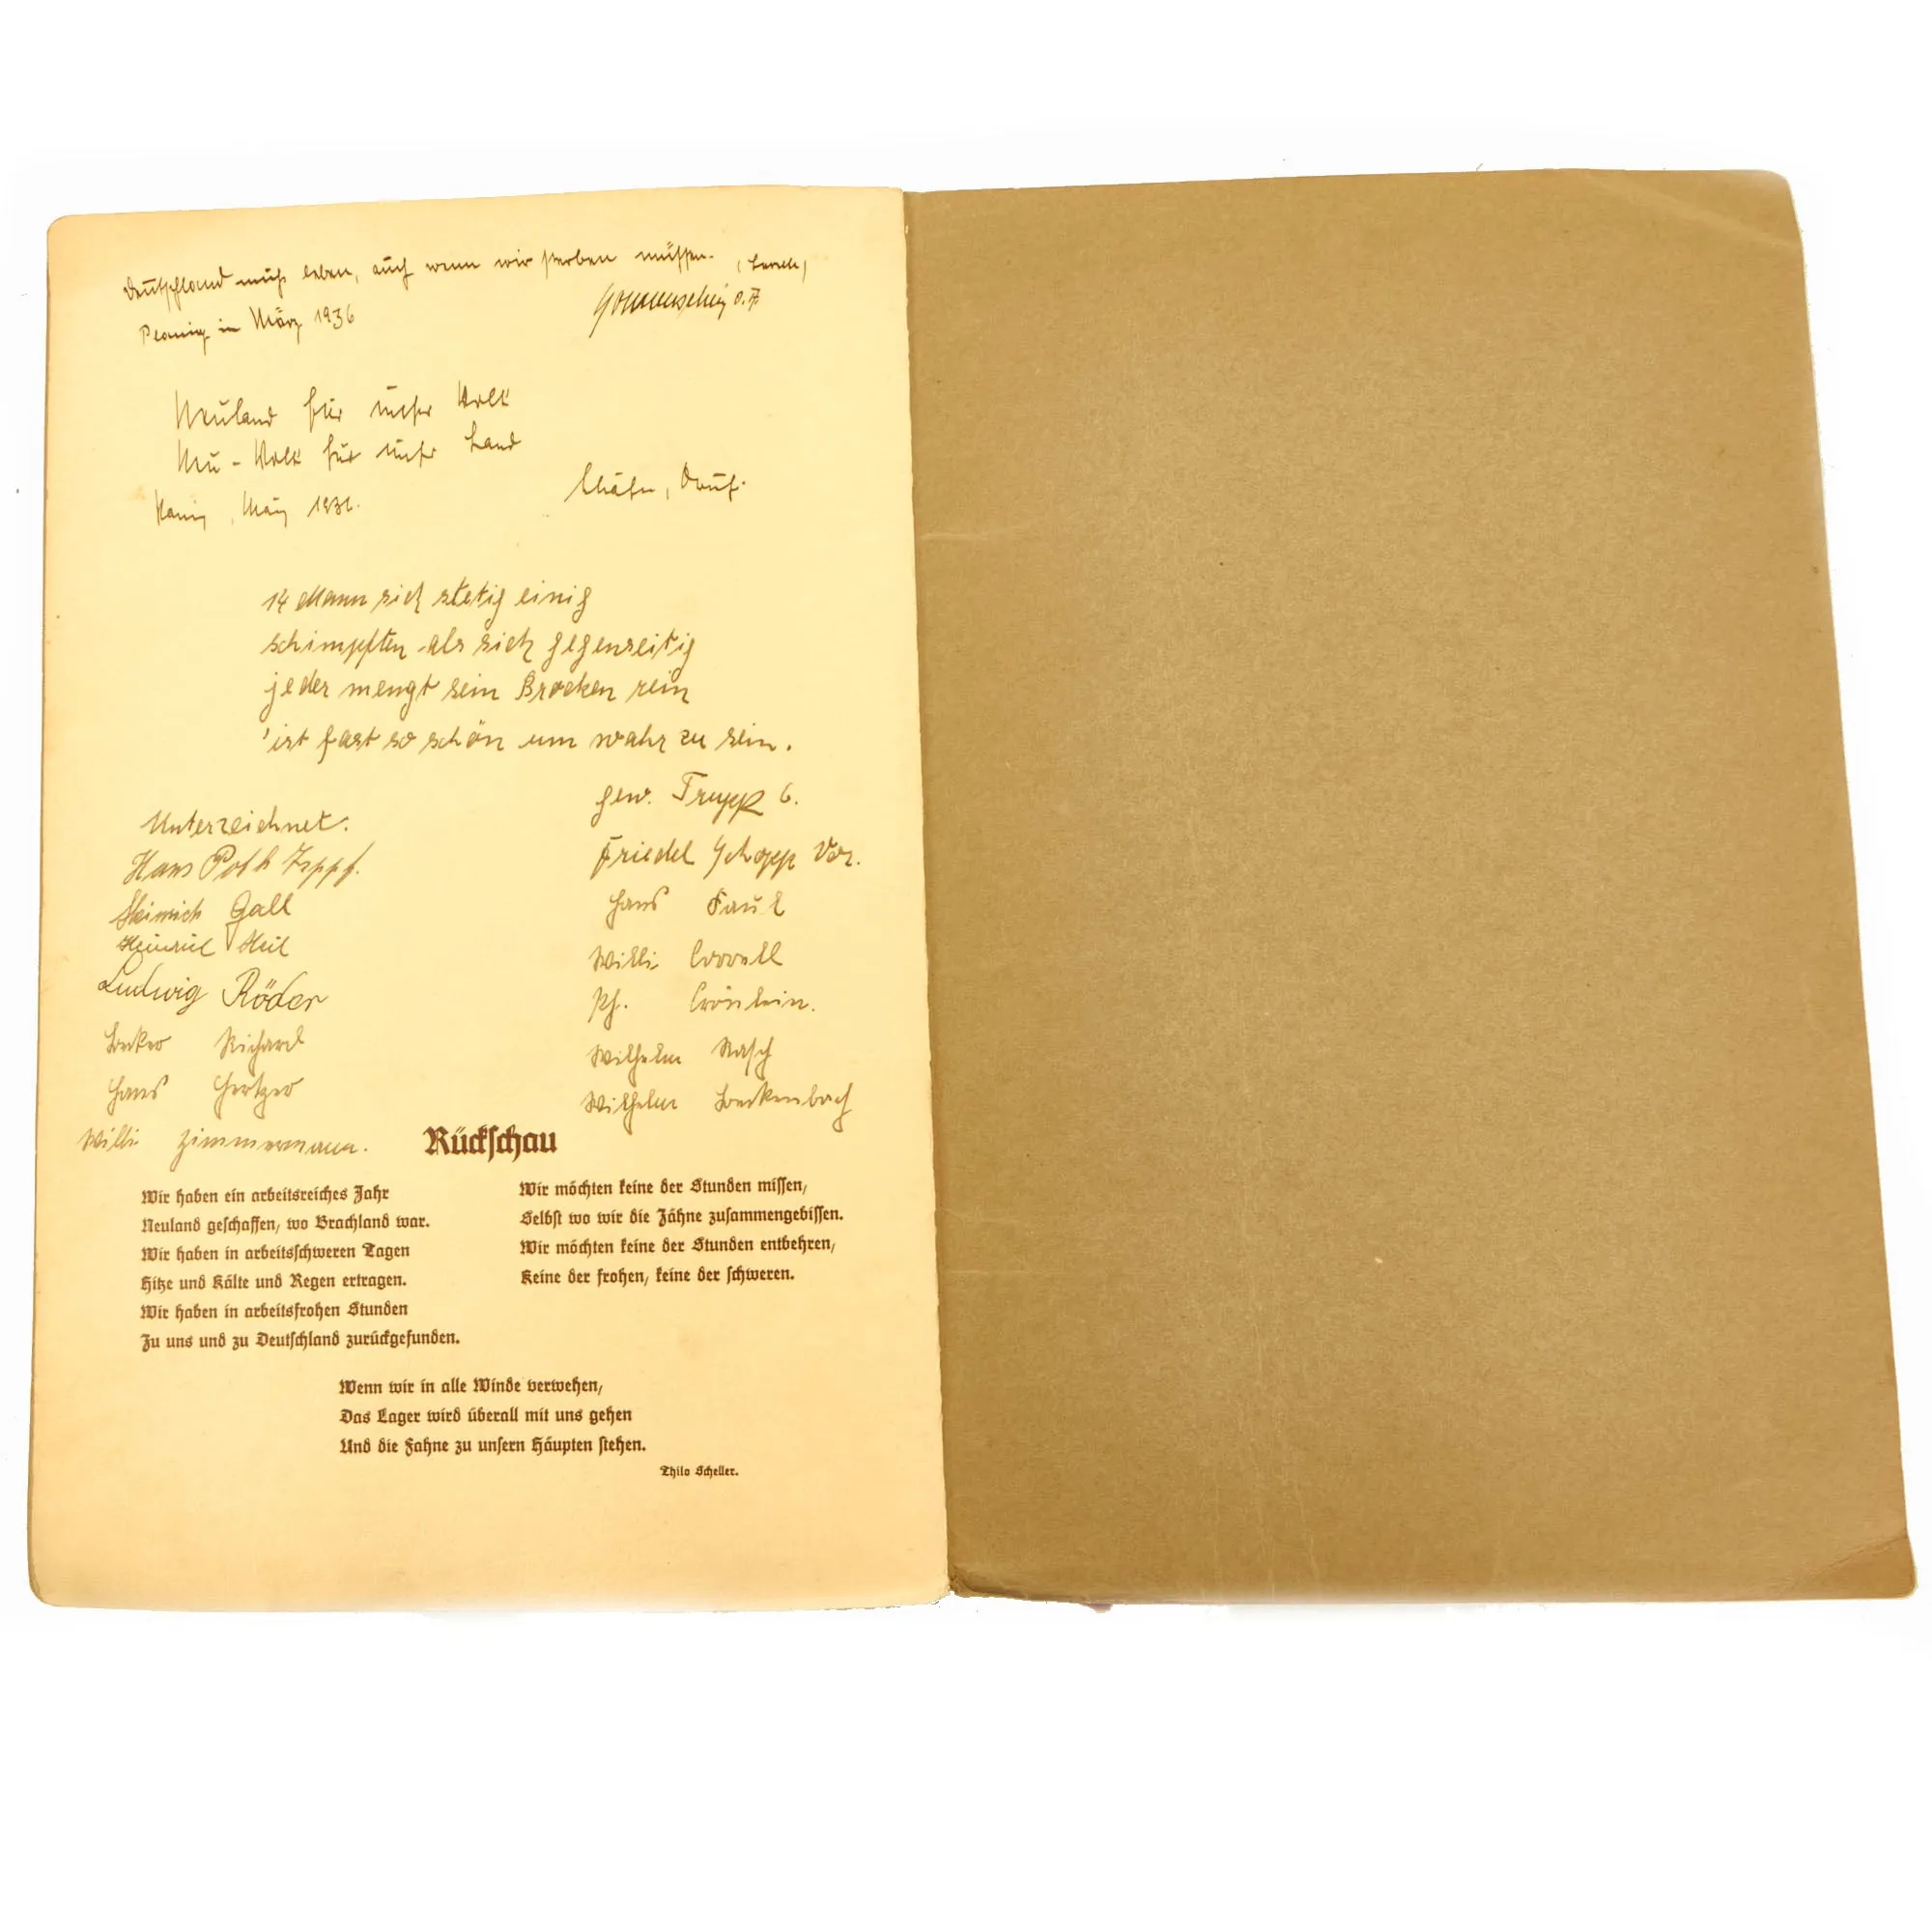 Deutschland muß leben, auch wenn wir sterben müssen. (Lersch)
im März 1936
Neuland für unser Volk
Neu-Volk für unser Land
März 1936.
14 Mann sich stetig einig
schimpften als sich gegenseitig
jeder mengt sein Brocken rein
'ist fast so schön um wahr zu sein.
gew. Trupp 6.
Unterzeichnet:
Hans Poth
Friedel Schopp Vor.
Heinrich Gall
Hans Faul
Heinrich Heil
Willi
Ludwig Röder
Ph.
Becker Richard
Wilhelm Rasch
Hans Hertzer
Wilhelm Beckenbach
Willi Zimmermann.
Rückschau
Wir haben ein arbeitsreiches Jahr
Neuland geschaffen, wo Brachland war.
Wir haben in arbeitsschweren Tagen
Hitze und Kälte und Regen ertragen.
Wir haben in arbeitsfrohen Stunden
Zu uns und zu Deutschland zurückgefunden.
Wir möchten keine der Stunden missen,
Selbst wo wir die Zähne zusammengebissen.
Wir möchten keine der Stunden entbehren,
Keine der frohen, keine der schweren.
Wenn wir in alle Winde verwehen,
Das Lager wird überall mit uns gehen
Und die Fahne zu unsern Häupten stehen.
Thilo Scheller.